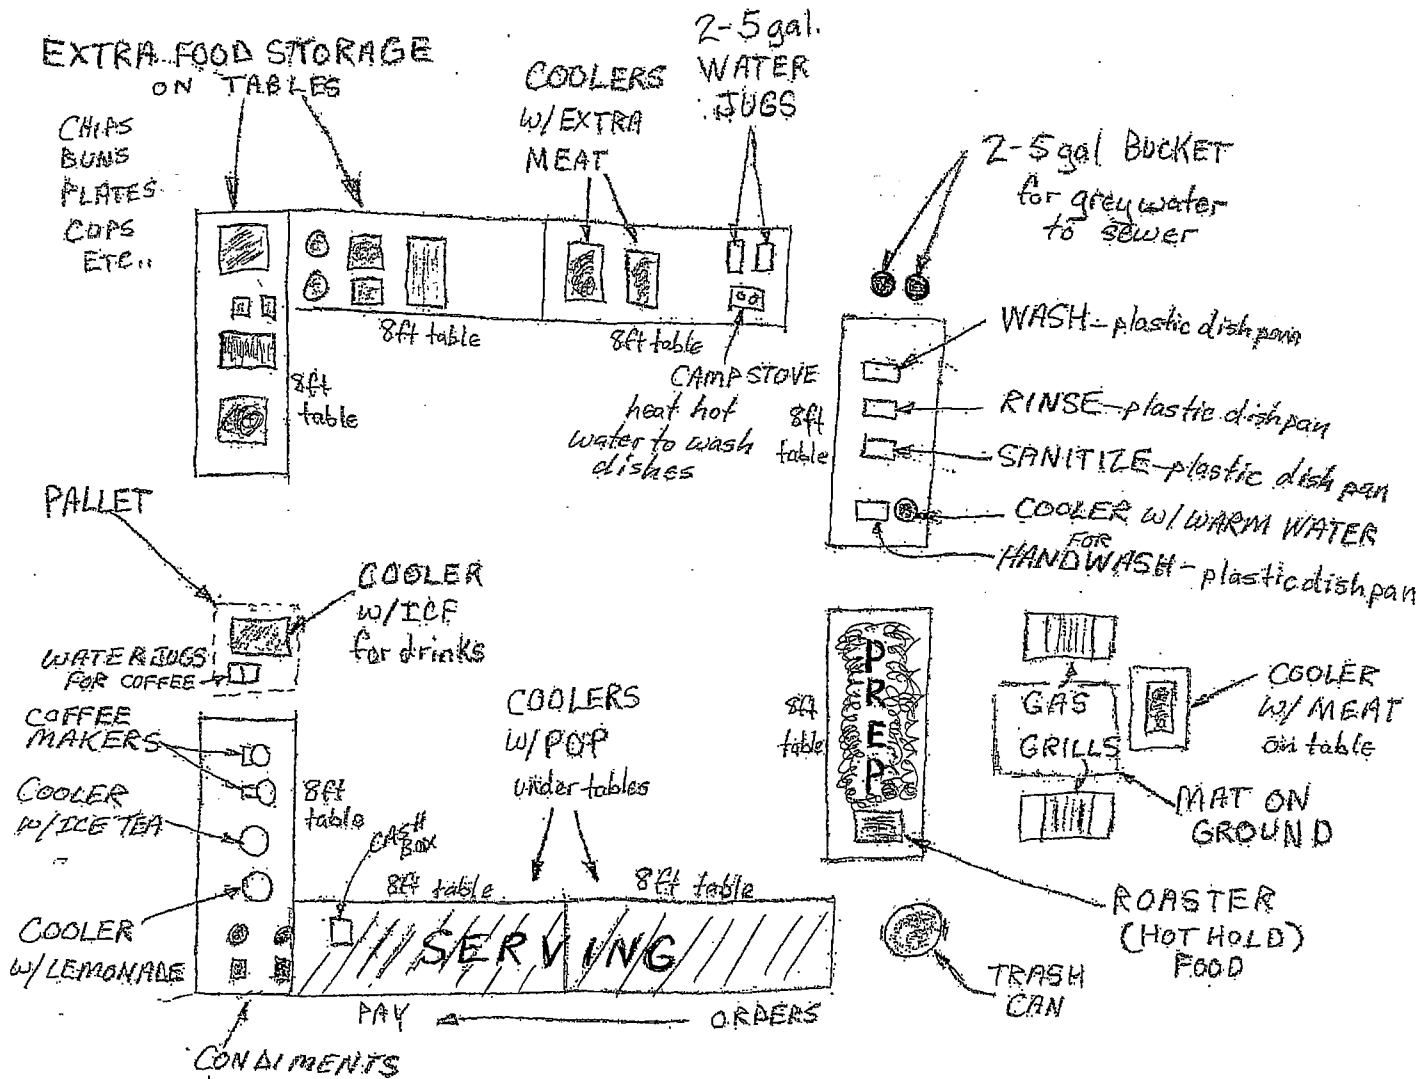 EXTRA FOOD STORAGE
ON TABLES
CHIPS
BUNS
PLATES
CUPS
ETC..
COOLERS
W/EXTRA
MEAT
2-5 gal.
WATER
JUGS
2-5 gal BUCKET
for greywater
to sewer
8ft table
8ft table
8ft
table
CAMPSTOVE
heat hot
water to wash
dishes
8ft
table
WASH-plastic dishpan
RINSE-plastic dishpan
SANITIZE-plastic dishpan
COOLER W/WARM WATER
FOR
HANDWASH-plastic dishpan
PALLET
COOLER
W/ICE
for drinks
WATER JUGS
FOR COFFEE
COFFEE
MAKERS
COOLER
W/ICE TEA
8ft
table
COOLER
W/LEMONADE
CONDIMENTS
COOLERS
W/POP
under tables
CASH
BOX
8ft table
8ft table
SERVING
PAY
ORDERS
8ft
table
PREP
GAS
GRILLS
COOLER
W/MEAT
on table
MAT ON
GROUND
ROASTER
(HOT HOLD)
FOOD
TRASH
CAN